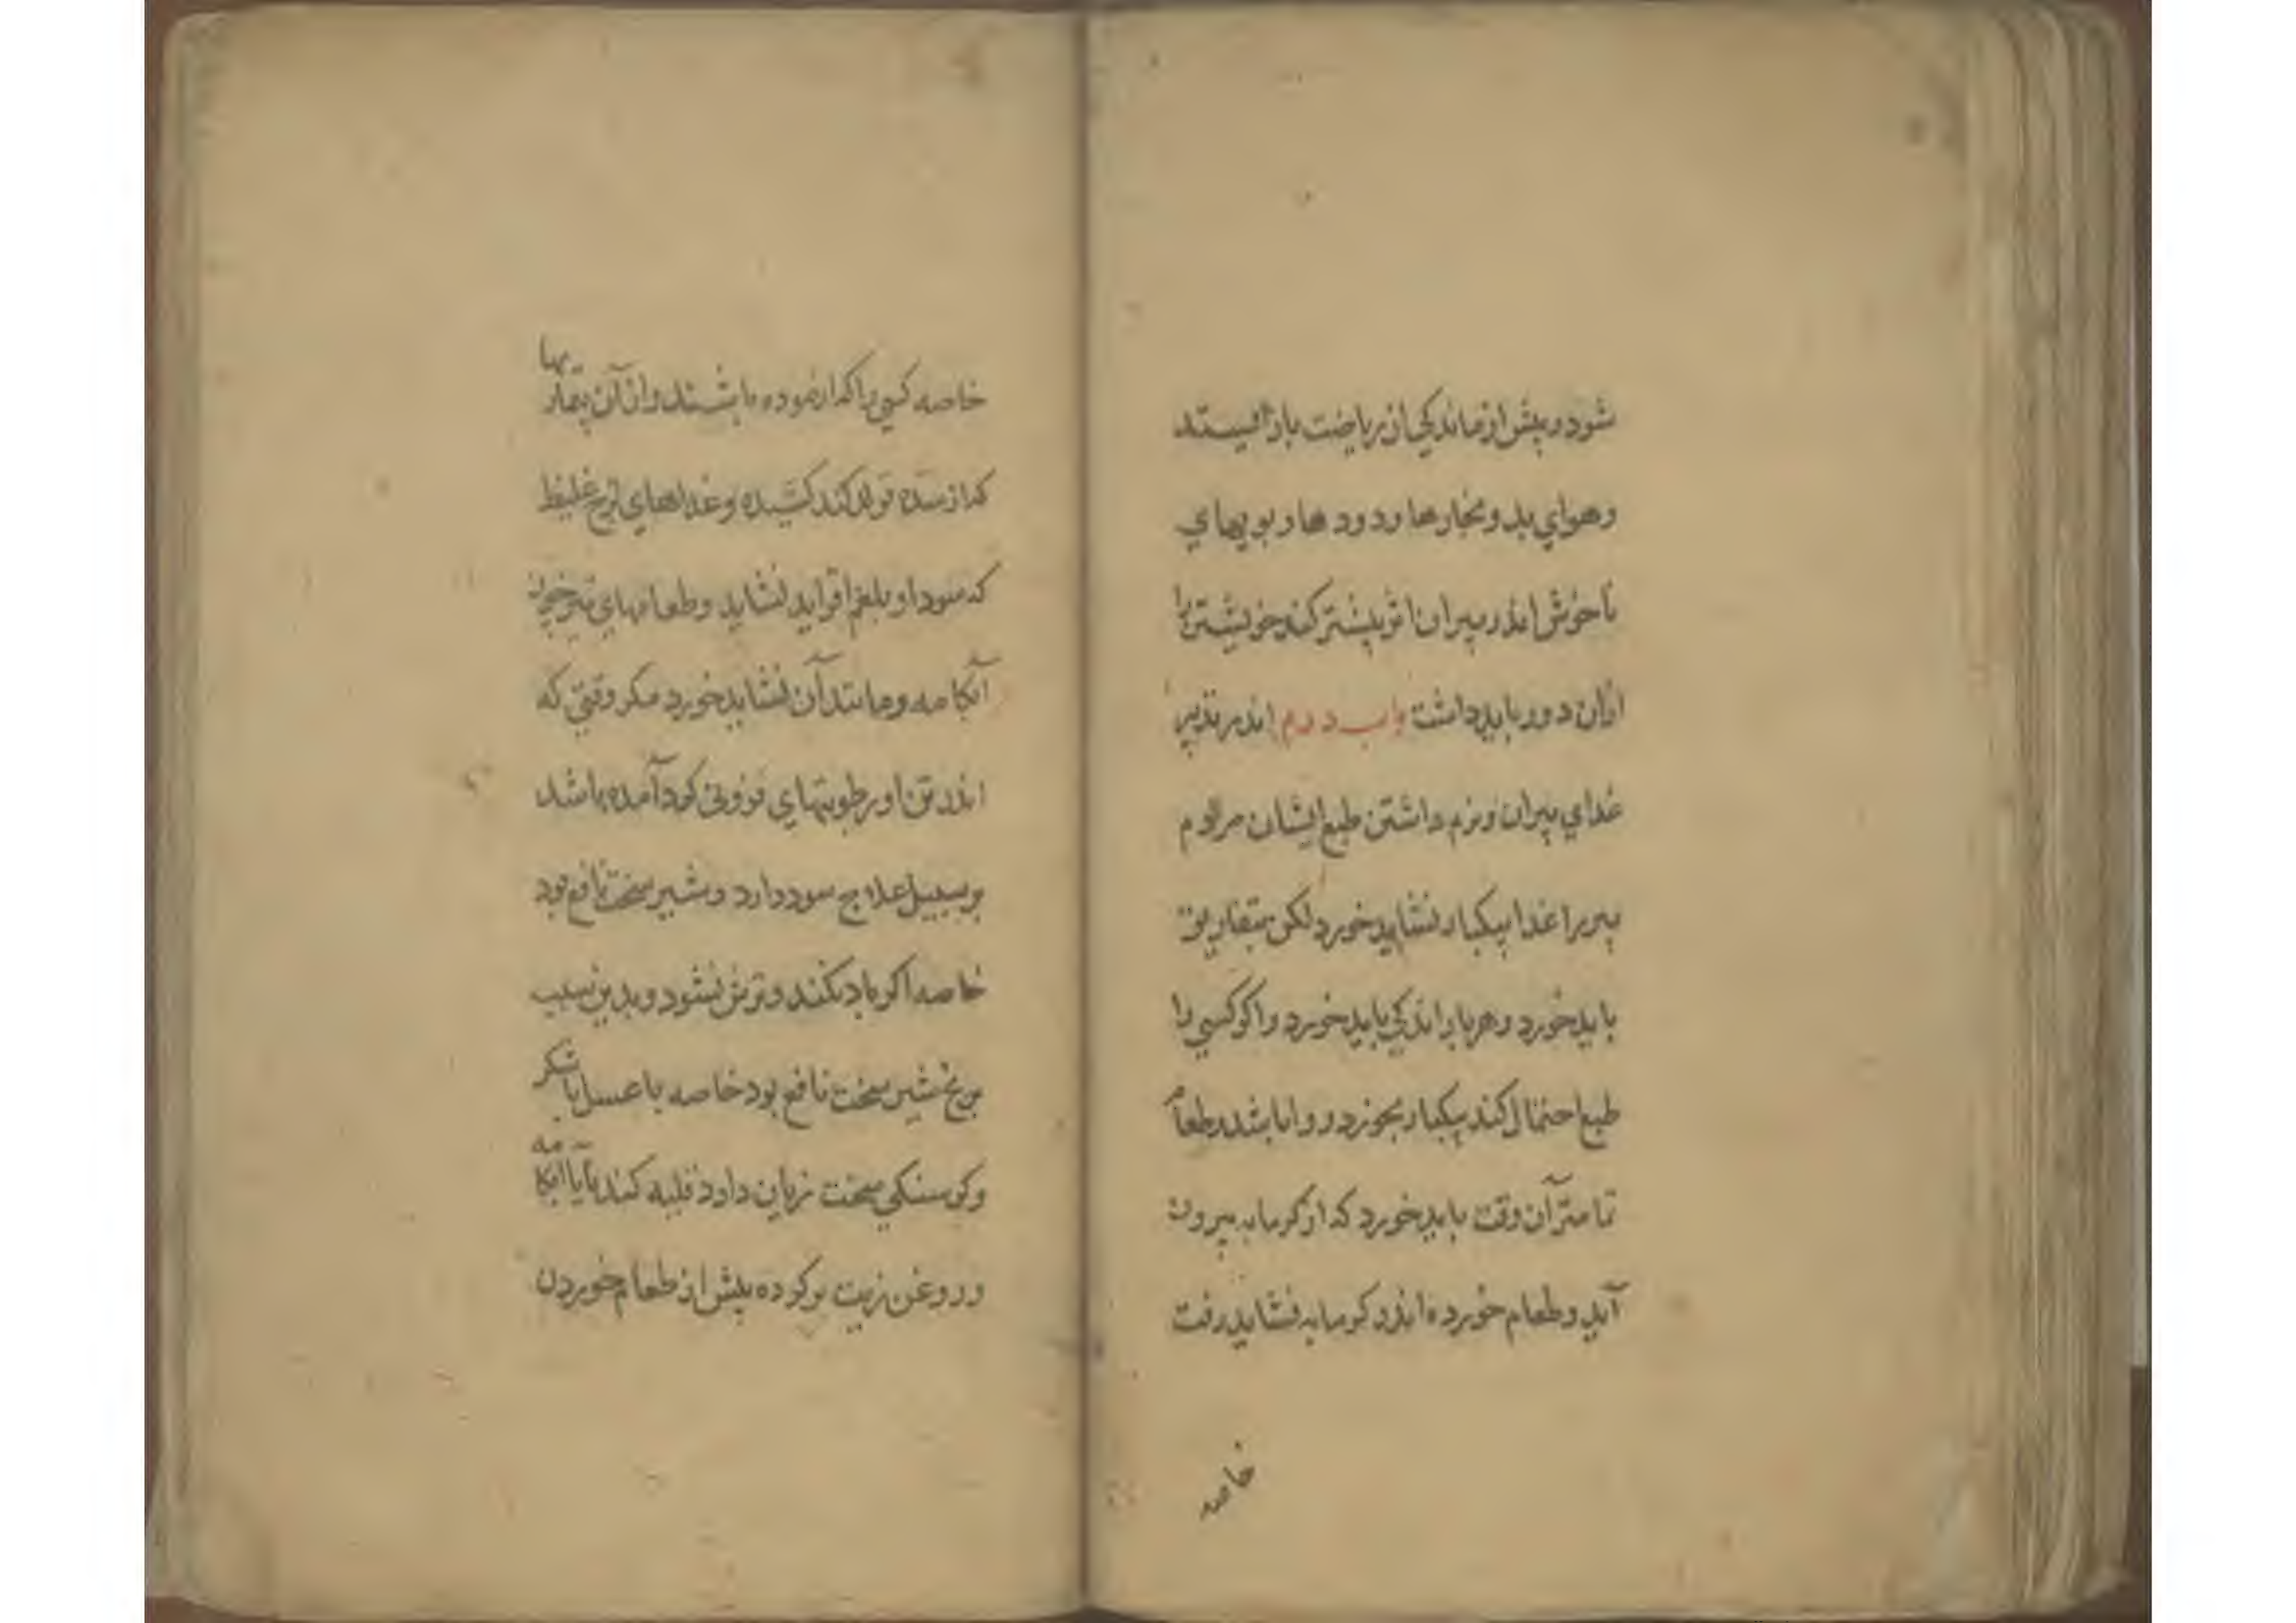 شود و پیش از ماندکی از ریاضت باز ایستد
و هوای بد و بخارها و دودها و بویهای
ناخوش اندر پیران اثر بیشتر کند خویشتن را
ازان دور باید داشت باب دوم اندر تدبیر
غدای پیران و نرم داشتن طبع ایشان مردم
پیر را غدا بیکبار نشاید خورد لکن بتفاریق
باید خورد و هر بار اندکی باید خورد و اکر کسی را
طبع احتمال کند بیکبار بخورد روا باشد و طعام
تمامتر آن وقت باید خورد که از کرمابه بیرون
آید و طعام خورده اندر کرمابه نشاید رفت
خاصه
خاصه کسی را که آزموده باشند و از آن بیماریها
که از سده تولد کند کشیده و غداهای لزج غلیظ
که سودا و بلغم افزاید نشاید و طعامهای تیز چون
آبکامه و مانند آن نشاید خورد مکر وقتی که
اندر تن او رطوبتهای فزونی کرد آمده باشد
بر سبیل علاج سود دارد و شیر سخت نافع بود
خاصه اکر باد نکند و ترش نشود و بدین سبب
برنج شیر سخت نافع بود خاصه با عسل یا شکر
و کرسنکی سخت زیان دارد قلیه کند نا با آبکامه
و روغن زیت بر کرده پیش از طعام خوردن